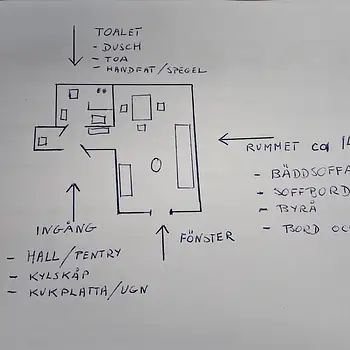 TOALET
- DUSCH
- TOA
- HANDFAT/SPEGEL
RUMMET ca 14
- BÄDDSOFFA
- SOFFBORD
- BYRÅ
- BORD OC
INGÅNG
FÖNSTER
- HALL/PENTRY
- KYLSKÅP
- KUKPLATTA/UGN